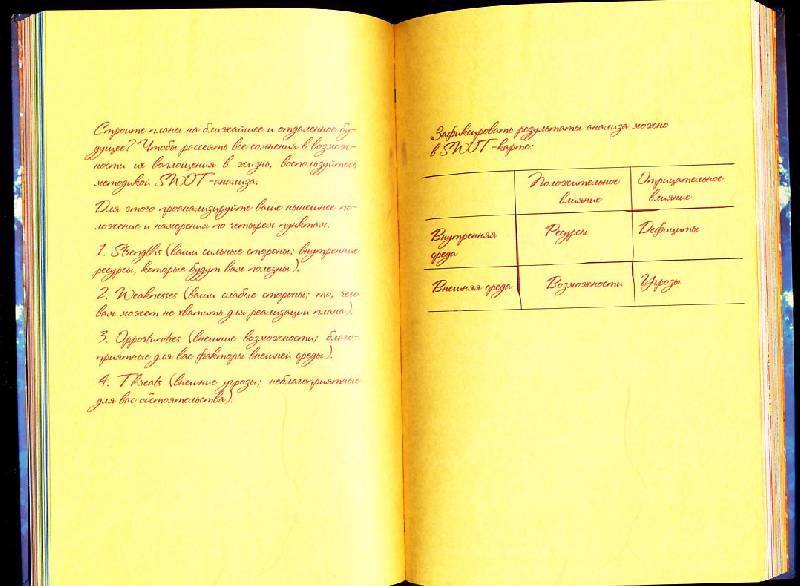 Строите планы на ближайшее и отдаленное бу-
дущее? Чтобы рассеять все сомнения в возмож-
ности их воплощения в жизнь, воспользуйтесь
методикой SWOT-анализа.
Для этого проанализируйте ваше нынешнее по-
ложение и намерения по четырем пунктам.
1. Strengths (ваши сильные стороны; внутренние
ресурсы, которые будут вам полезны).
2. Weaknesses (ваши слабые стороны; то, чего
вам может не хватить для реализации плана).
3. Opportunities (внешние возможности; благо-
приятные для вас факторы внешней среды).
4. Threats (внешние угрозы; неблагоприятные
для вас обстоятельства).
Зафиксировать результаты анализа можно
в SWOT-карте:
Положительное Отрицательное
влияние влияние
Внутренняя Ресурсы Дефициты
среда
Внешняя среда Возможности Угрозы